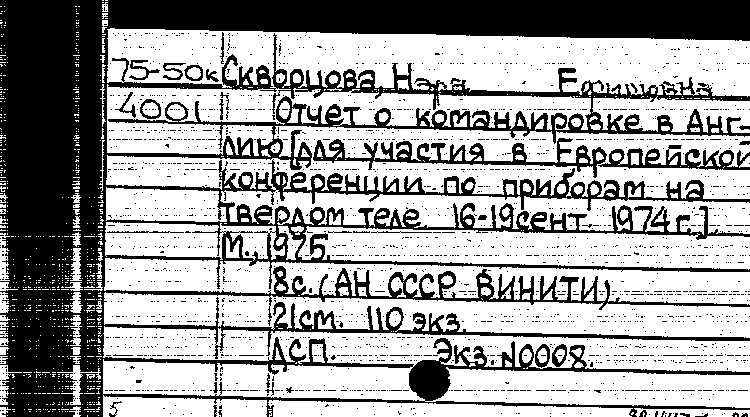 75-50к Скворцова, Нэра Ефимовна
4001 Отчет о командировке в Анг-
лию [для участия в Европейской
конференции по приборам на
твердом теле 16-19 сент. 1974 г.].
М., 1975.
8 с. (АН СССР. ВИНИТИ).
21 см. 110 экз.
ДСП. Экз. N0008.
5